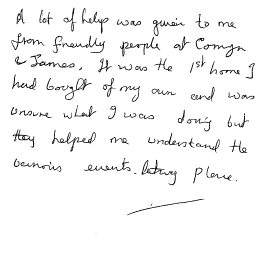 A lot of help was given to me
from friendly people at Comyn
& James. It was the 1st home I
had bought of my own and was
unsure what I was doing but
they helped me understand the
various events. taking place.